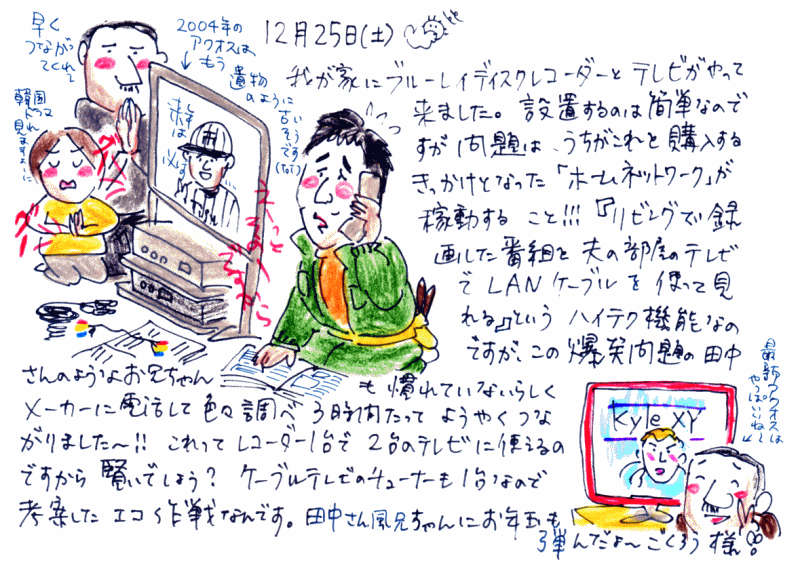 12月25日(土)
早く
つながっ
てくれ〜
韓国
ドラマ
見れ
ますように
2004年の
アクオスは、
もう
遺物
のように
古い
そう
です
ググッ
えーっとー
ですからー
我が家にブルーレイディスクレコーダーとテレビがやって
来ました。設置するのは簡単なので
すが問題は、うちがこれを購入する
きっかけとなった「ホームネットワーク」が
稼動すること!!!『リビングで録
画した番組を夫の部屋のテレビ
でLANケーブルを使って見
れる』というハイテク機能なの
ですが、この爆笑問題の田中
さんのようなお兄ちゃんも慣れていないらしく
メーカーに電話して色々調べ3時間たってようやくつな
がりました〜!!これってレコーダー1台で2台のテレビに使えるの
ですから賢いでしょう?ケーブルテレビのチューナーも1台なので
考案したエコ作戦なんです。田中さん風兄ちゃんにお年玉も
弾んだよ〜ごくろう様!!
最新アクオスは
やっぱいいねぇ
Kyle XY